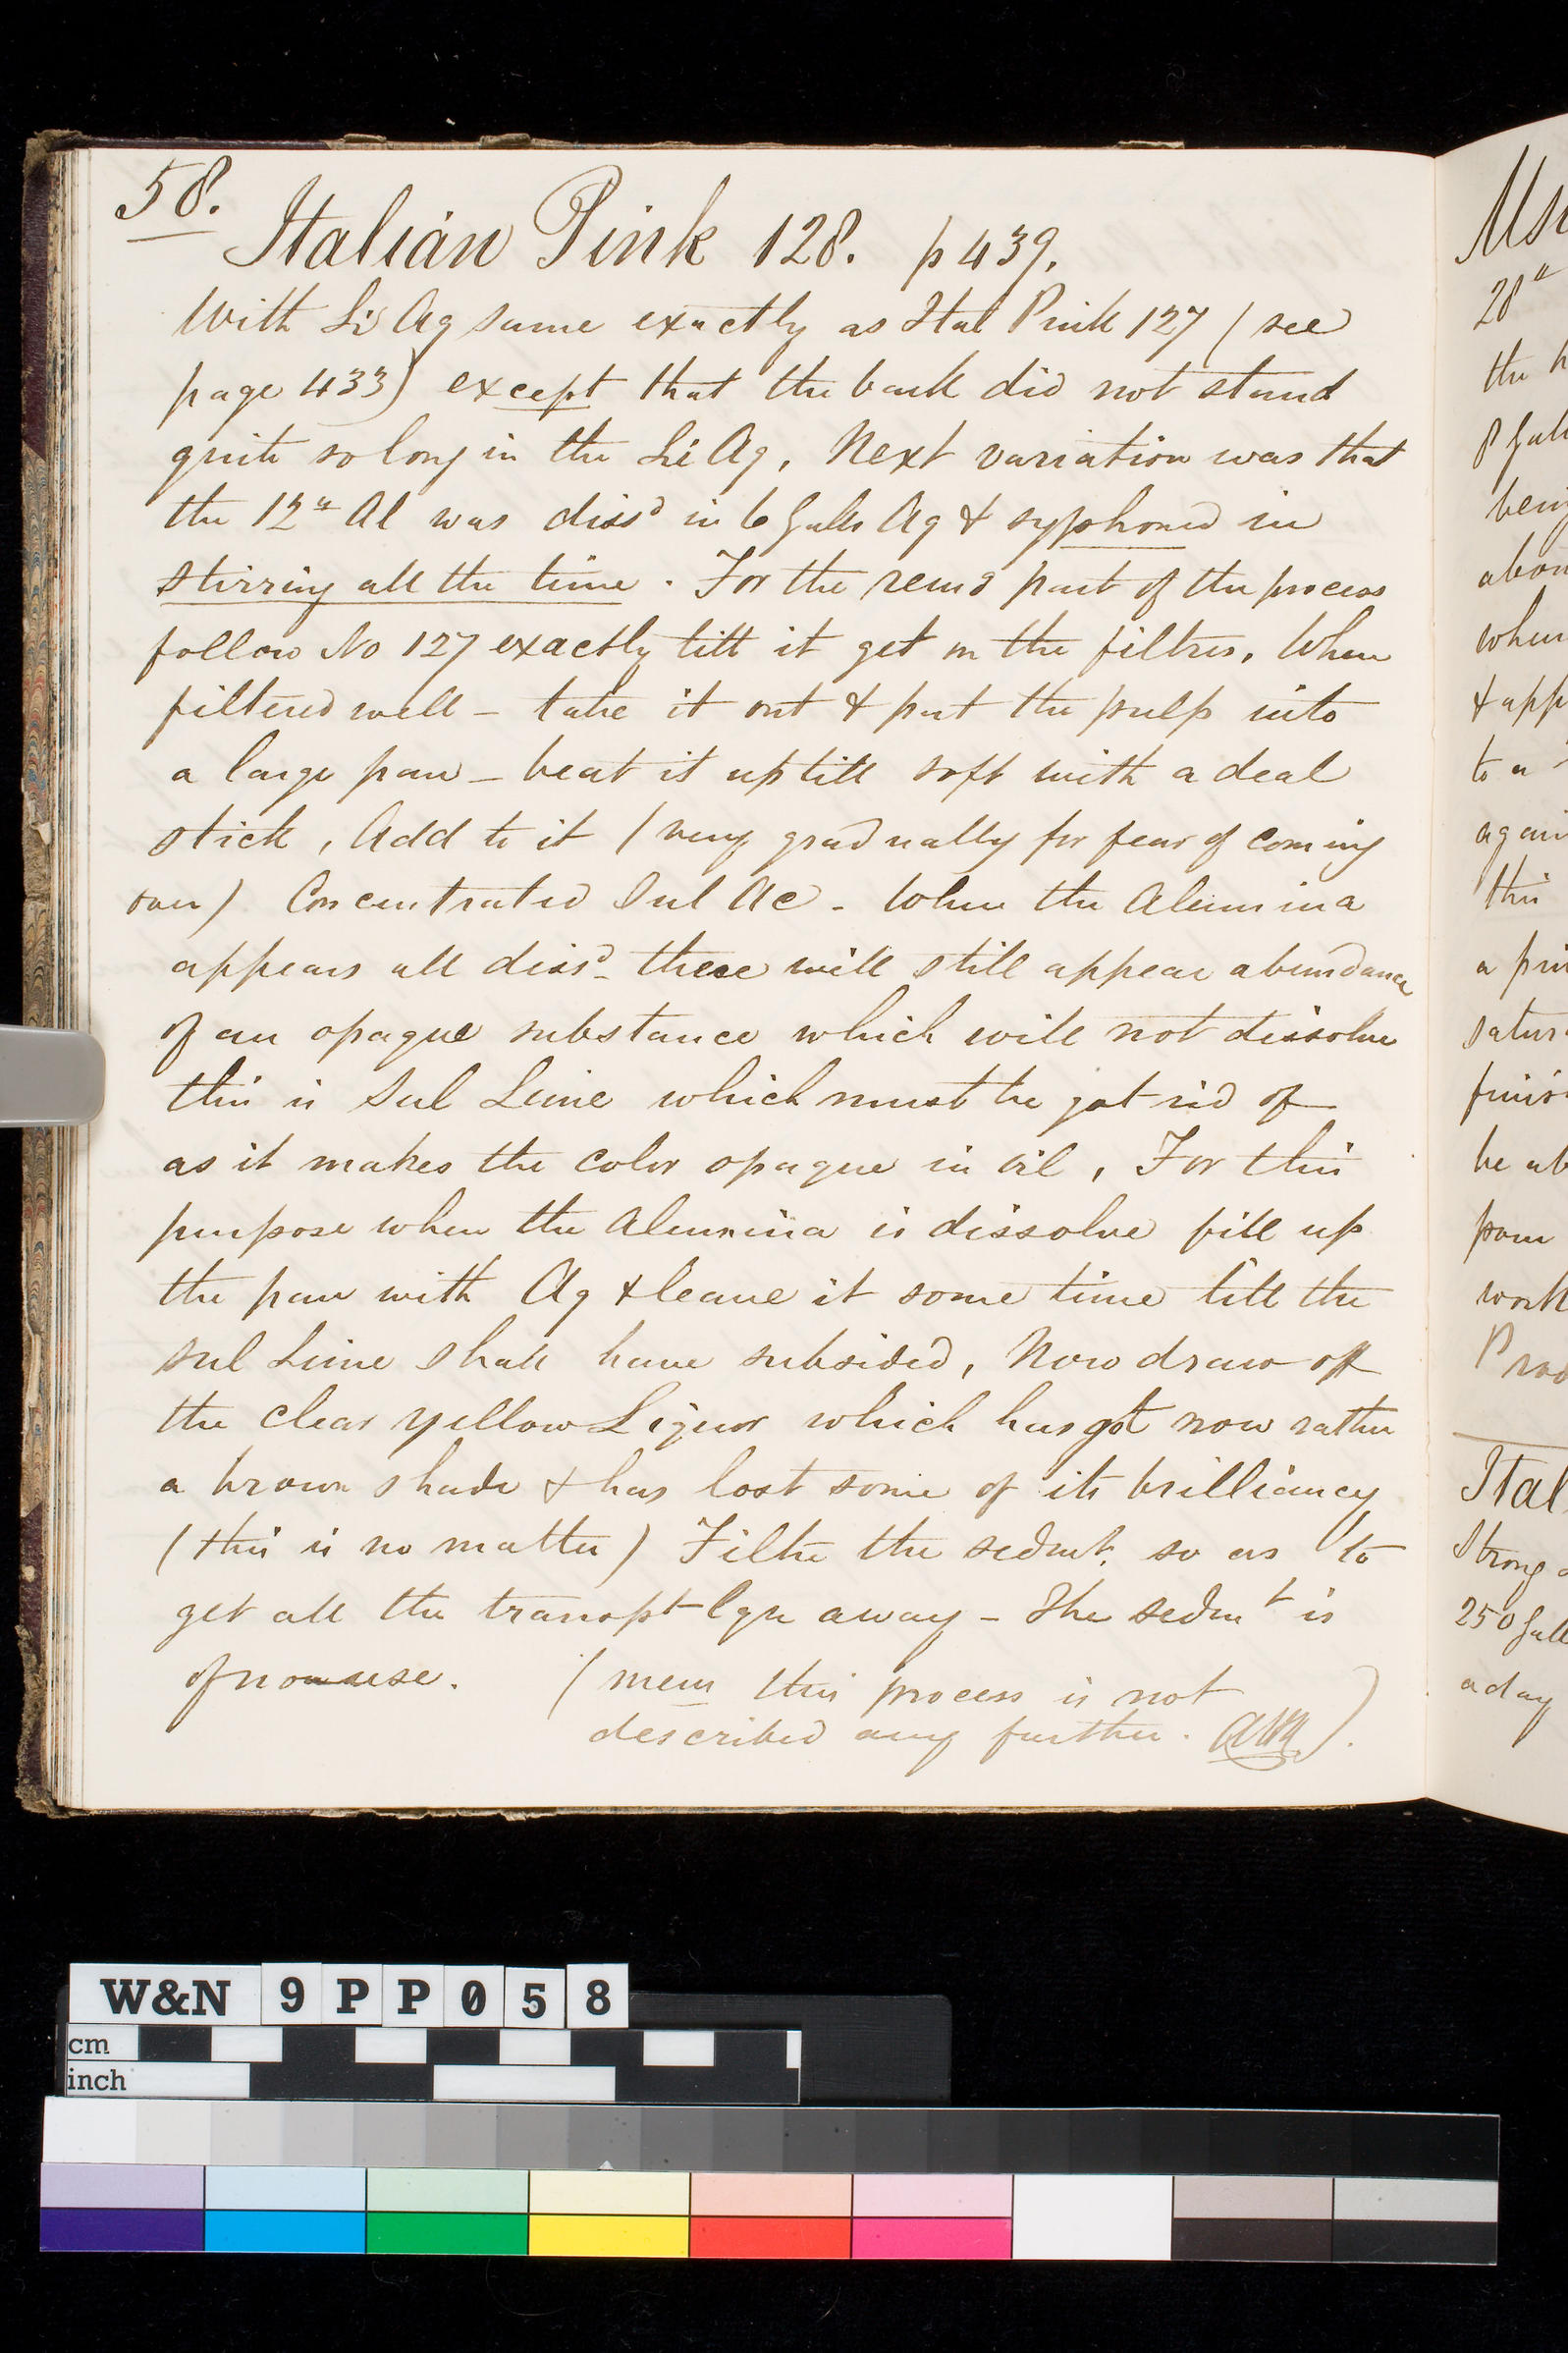 58.
Italian Pink 128. p 439.
With Li Aq same exactly as Ital Pink 127 (see
page 433) except that the bark did not stand
quite so long in the Li Aq, Next variation was that
the 12" Al was diss^d in 6 Galls Aq & syphoned in
stirring all the time. For the rem^g part of the process
follow No 127 exactly till it get on the filtres, When
filtered well - take it out & put the pulp into
a large pan - beat it up till soft with a deal
stick, Add to it (very gradually for fear of coming
over) Concentrated Sul Ac - When the Alumina
appears all diss^d - there will still appear abundance
of an opaque substance which will not dissolve
this is Sul Lime which must be got rid of
as it makes the color opaque in oil, For this
purpose when the Alumina is dissolve fill up
the pan with Aq & leave it some time till the
sul Lime shall have subsided, Now draw off
the clear yellow Liquor which has got now rather
a brown shade & has lost some of its brilliancy
(this is no matter) Filtre the sedmt. so as to
get all the transpt lqr away - The sedm^t is
of no use.
(mem this process is not
described any further.
Msr
28"
the
8 Galls
being
abou
when
& app
to a
again
this
a pin
satur
finis
be ab
pour
work
Prod
Ital
Strong
250 Gall
a day
W&N 9PP058
cm
inch